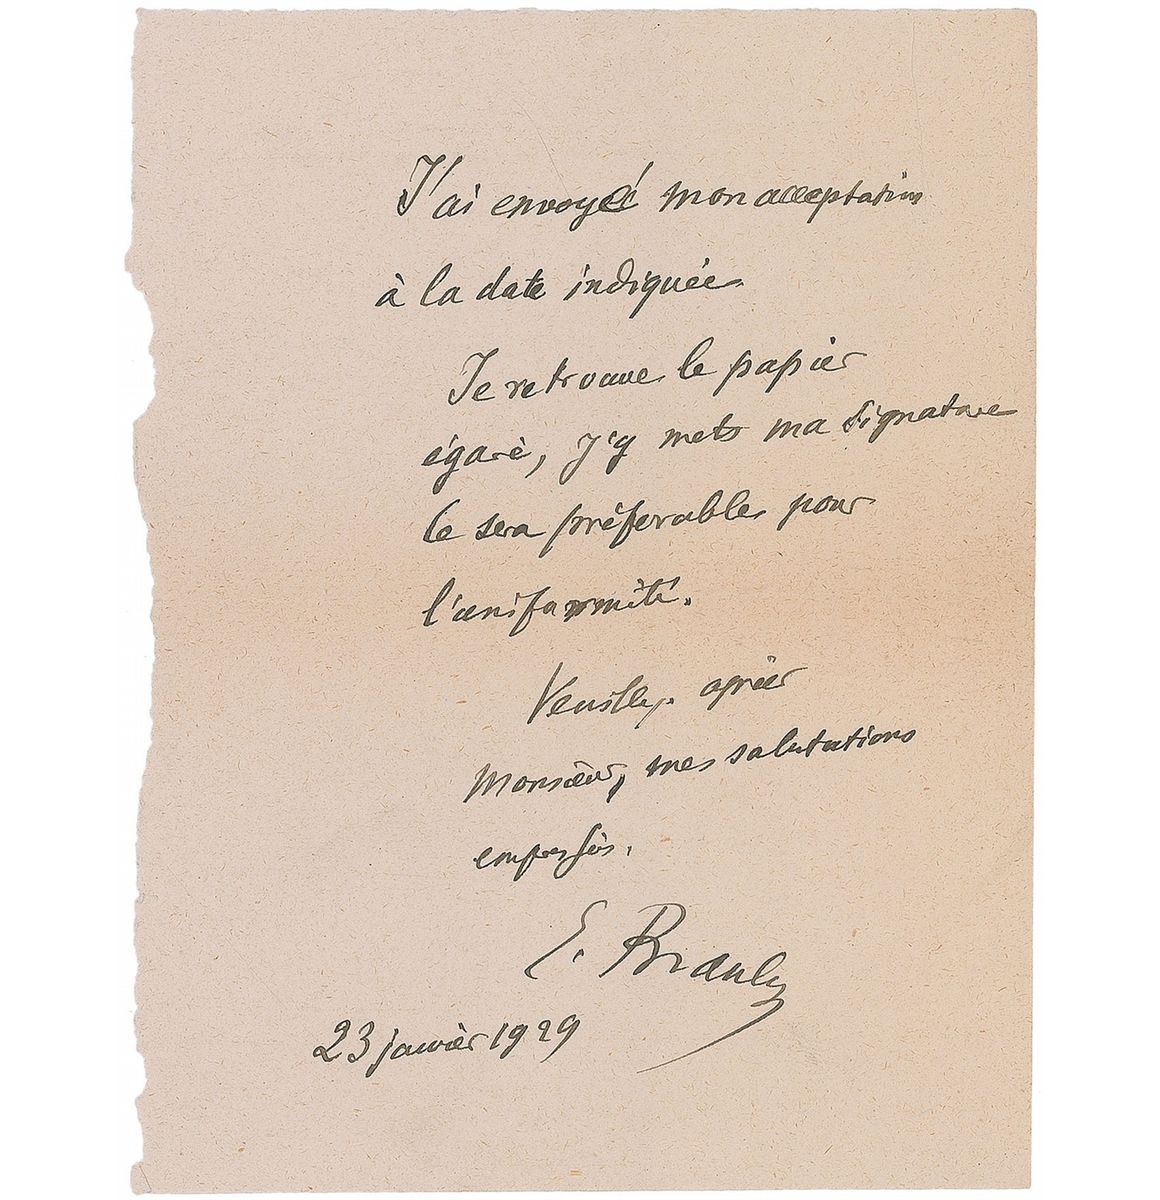 J'ai envoyé mon acceptation
à la date indiquée
Je retrouve le papier
égaré, j'y mets ma signature
ce sera préférable pour
l'uniformité.
Veuillez agréer
Monsieur, mes salutations
empressées.
E. Branly
23 janvier 1929